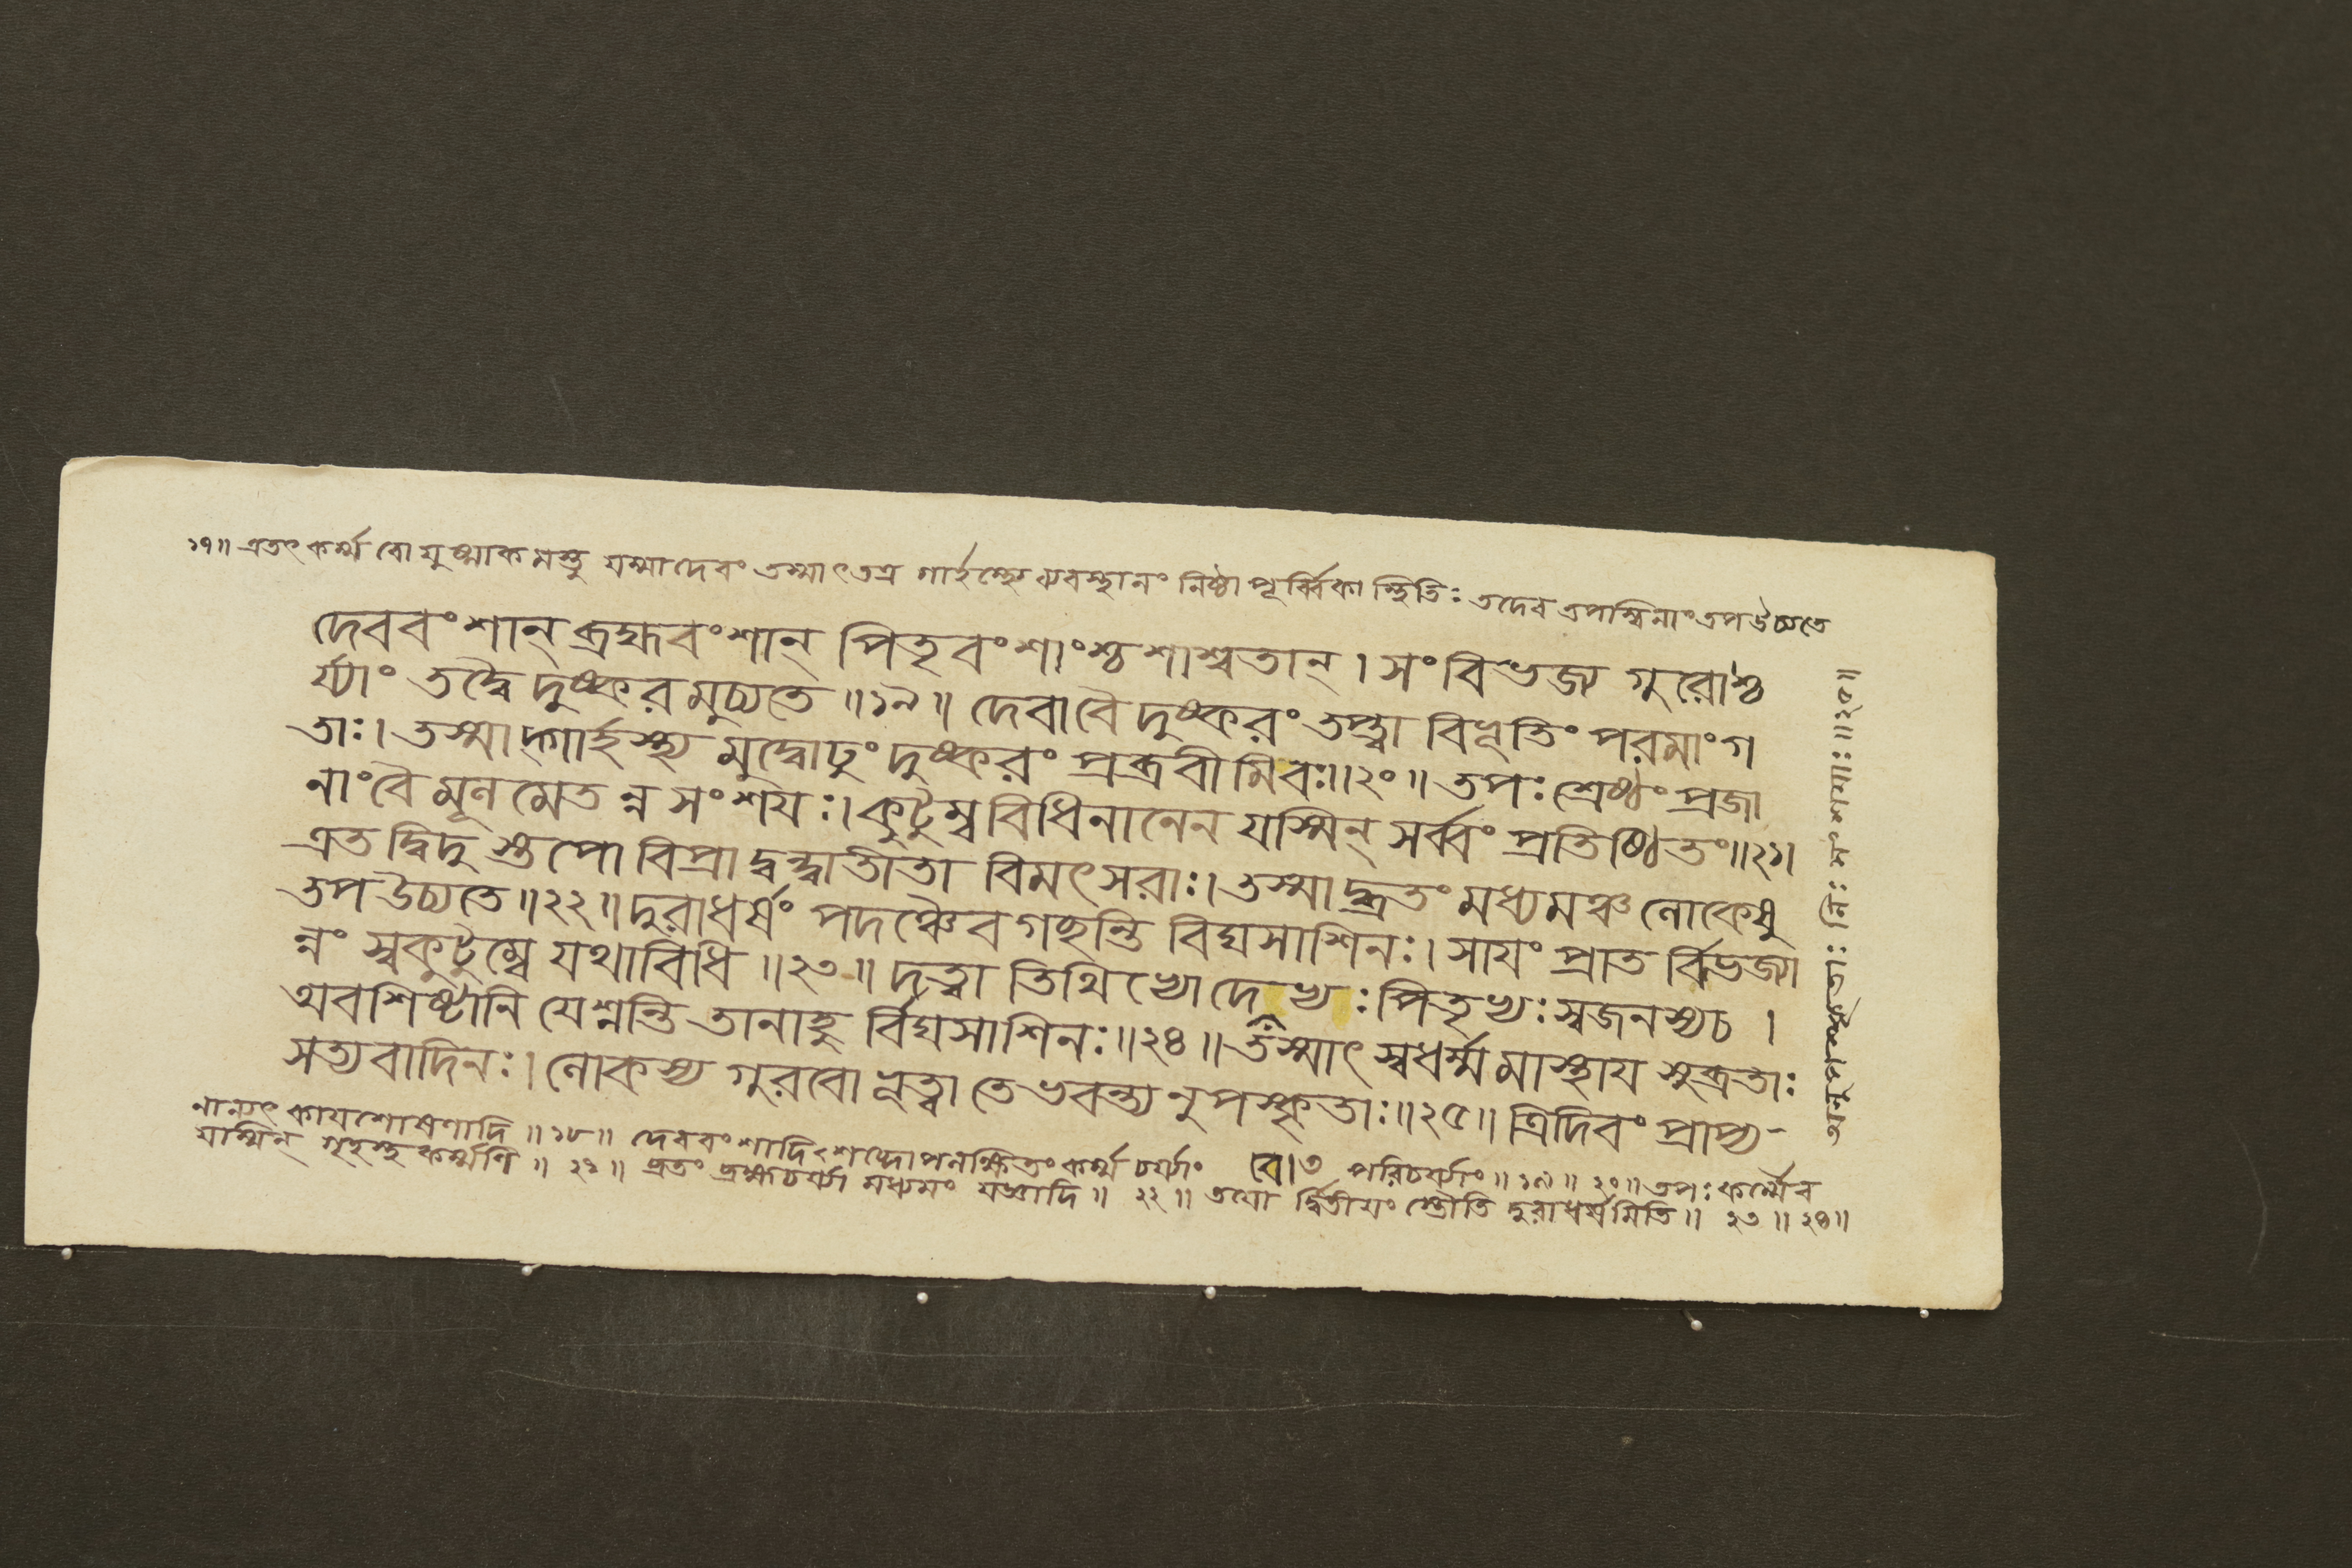 ১৭॥ এতৎ কর্ম্ম বো যুষ্মাকমস্তু যস্মাদেবং তস্মাৎ তত্র গার্হস্থ্যে ব্যবস্থানং নিষ্ঠা পূর্ব্বিকা স্থিতিঃ তদেব তপস্বিনাং তপ উচ্যতে
দেববংশান্ ব্রহ্মবংশান্ পিতৃবংশাংশ্চ শাশ্বতান্ । সংবিভজ্য গুরোশ্চ
র্য্যাং তদ্বৈ দুষ্করমুচ্যতে ॥১৯॥ দেবা বৈ দুষ্করং তপ্ত্বা বিভূতিং পরমাং গ
তাঃ। তস্মাদ্গার্হস্থ্যমুদ্বোঢুং দুষ্করং প্রব্রবীমি বঃ॥২০॥ তপঃ শ্রেষ্ঠং প্রজা
নাং বৈ মূলমেতন্ন সংশয়ঃ। কুটুম্ববিধিনানেন যস্মিন্ সর্ব্বং প্রতিষ্ঠিতং॥২১।
এতদ্বিদুস্তপো বিপ্রা দ্বন্দ্বাতীতা বিমৎসরাঃ। তস্মাদ্ব্রতং মধ্যমঞ্চ লোকেষু
তপ উচ্যতে ॥২২॥ দুরাধর্ষং পদঞ্চৈব গচ্ছন্তি বিঘসাশিনঃ। সায়ং প্রাতর্বিভজ্যা
ন্নং স্বকুটুম্বে যথাবিধি ॥২৩॥ দত্ত্বাতিথিভ্যো দেভ্যঃ পিতৃভ্যঃ স্বজনস্য চ ।
অবশিষ্টানি যেশ্নন্তি তানাহুর্বিঘসাশিনঃ॥২৪॥ তস্মাৎ স্বধর্ম্মমাস্থায় সুব্রতাঃ
সত্যবাদিনঃ। লোকস্য গুরবো ভূত্বা তে ভবন্ত্যনুপস্কৃতাঃ॥২৫॥ ত্রিদিবং প্রাপ্য-
নান্যৎ কায়শোষণাদি ॥১৮॥ দেববংশাদিশব্দোপলক্ষিতং কর্ম্ম চর্য্যাং বো৩ পরিচর্য্যাং॥১৯॥ ২০॥ তপঃ কর্ম্মৈব
যস্মিন্ গৃহস্থকর্ম্মণি ॥২১॥ ব্রতং ব্রহ্মচর্য্যং মধ্যমং যজ্ঞাদি॥ ২২॥ তয়ো র্দ্বিতীয়ং স্তৌতি দুরাধর্ষমিতি॥ ২৩॥২৪॥
অনুপস্কৃতাঃ নিঃসংশয়াঃ॥২৫॥